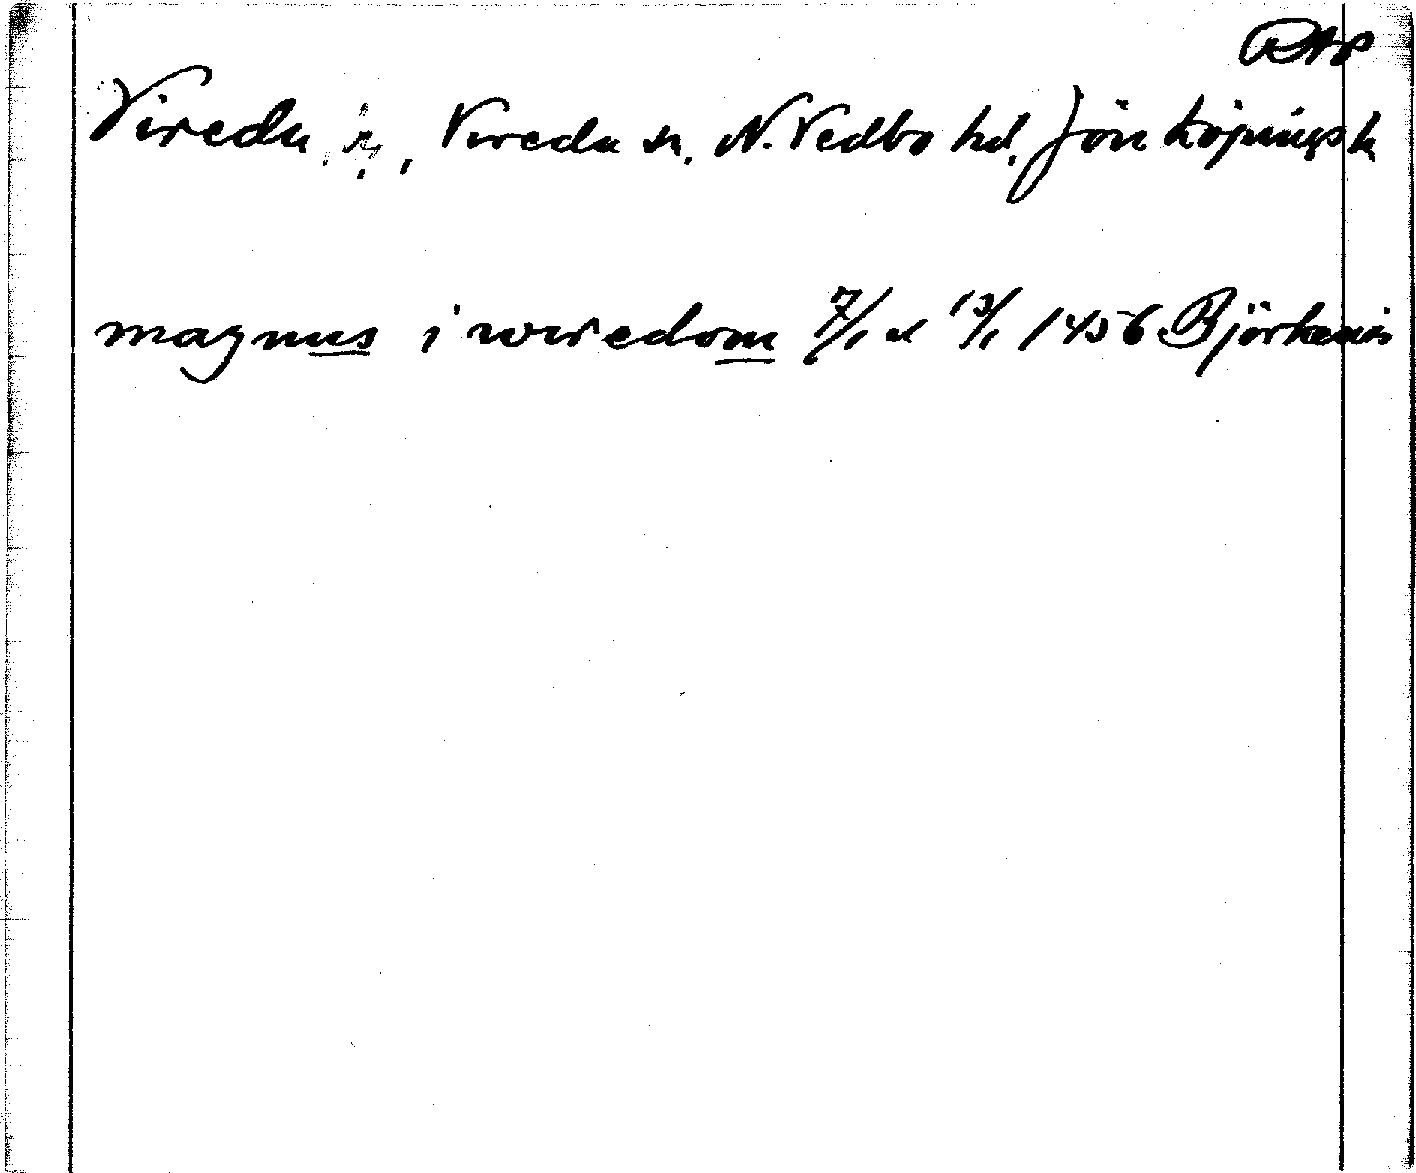 RAp
Vireda, Vireda sn, N. Vedbo hd, Jönköpings l
magnus i wiredom 7/1 el 13/1 1456 Björkenäs